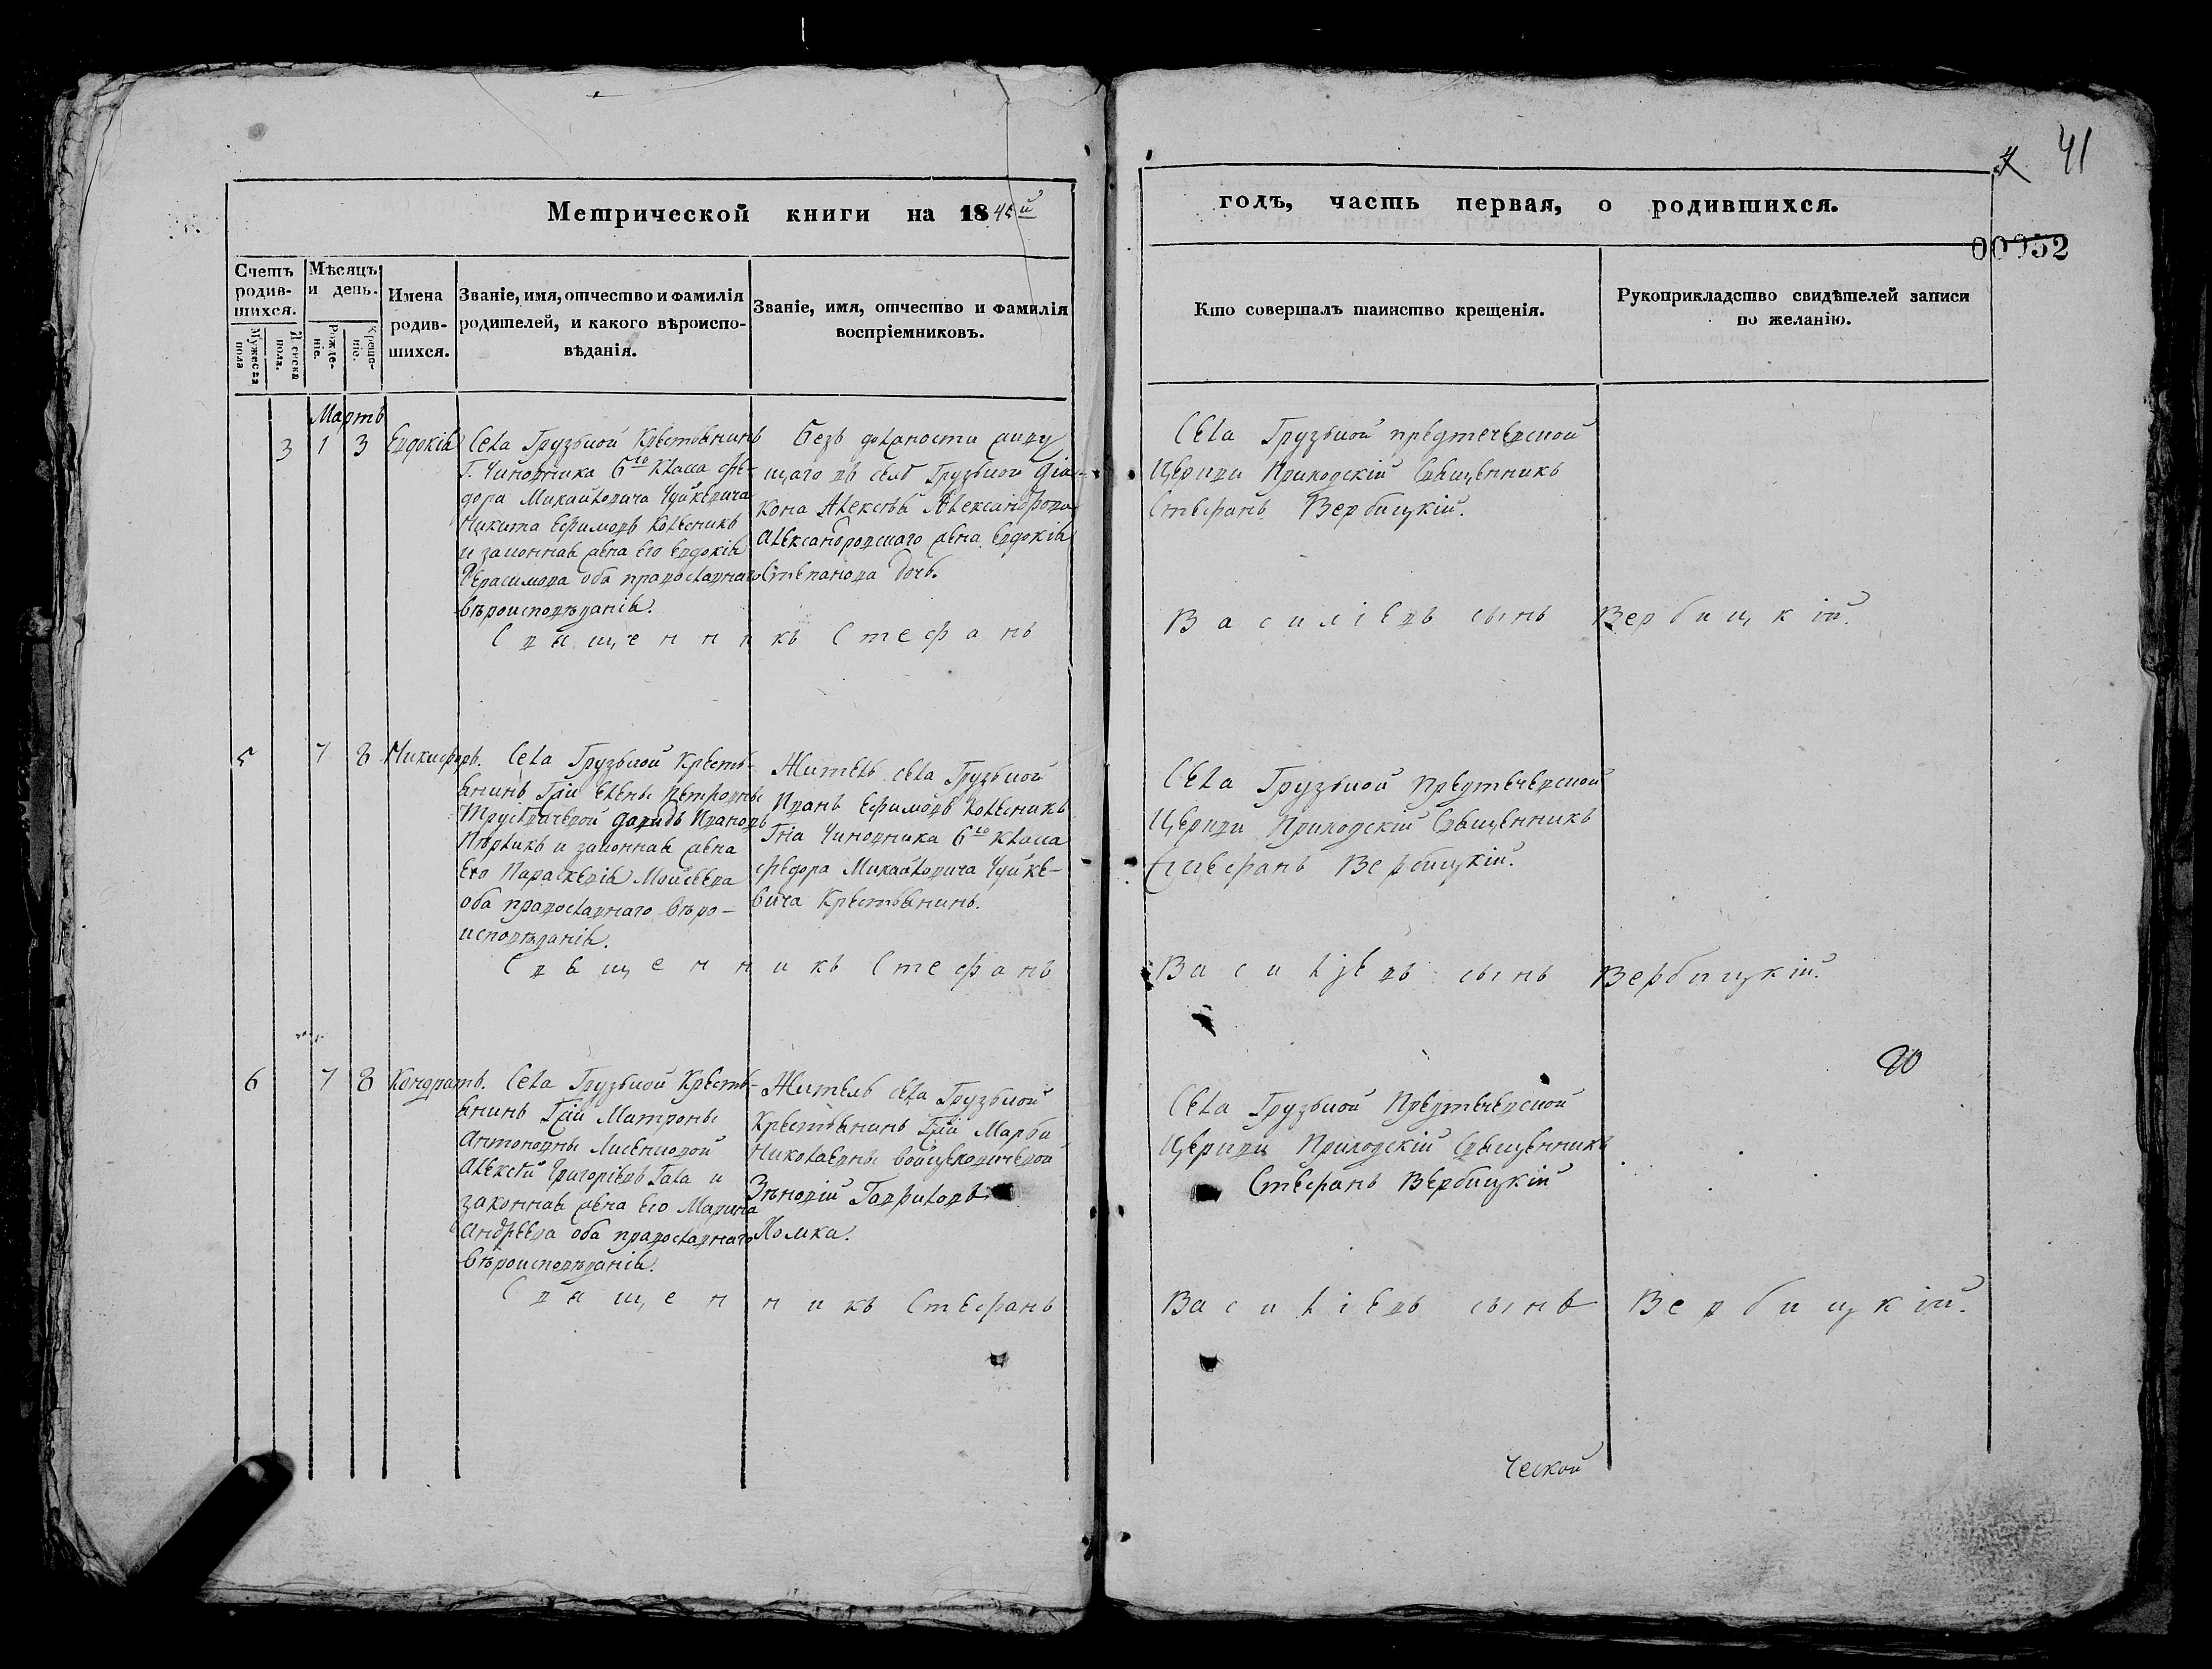 41
Метрической книги на 1845й
годъ, часть первая, о родившихся.
00052
Счетъ родив-
шихся.
Мужеска пола
Женска пола.
Мѣсяцъ
и день.
Рожде-
ніе.
Креще-
ніе.
Имена
родив-
шихся.
Званіе, имя, отчество и фамилія
родителей, и какого вѣроиспо-
вѣданія.
Званіе, имя, отчество и фамилія
воспріемниковъ.
Кто совершалъ таинство крещенія.
Рукоприкладство свидѣтелей записи
по желанію.
Мартъ
3 1 3 Евдокія
Села Грузской Крестьянинъ
Г. Чиновника 6го Класса Фе-
дора Михайловича Чуйкевича
Никита Ефимовъ Колесникъ
и законная жена его Евдокія
Герасимова оба православнаго
вѣроисповѣданія.
Безъ должности живу
щаго въ селѣ Грузской Діа-
кона Алексѣя Александрова
Александровскаго жена Евдокія
Степанова дочь.
Села Грузской Предтечевской
Церкви Приходскій Священникъ
Стефанъ Вербицкій.
Священникъ Стефанъ Василіевъ сынъ Вербицкій.
5 7 8 Никифоръ.
Села Грузской Кресть-
янинъ Гжи Елены Петровны
Давидъ Ивановъ
и законная жена
его Параскевія Моисеева
оба православнаго вѣро-
исповѣданія.
Житель села Грузской
Иванъ Ефимовъ Колесникъ
Гна Чиновника 6го Класса
Федора Михайловича Чуйке-
вича Крестьянинъ.
Села Грузской Предтечевской
Церкви Приходскій Священникъ
Стефанъ Вербицкій.
Священникъ Стефанъ Василіевъ сынъ Вербицкій.
6 7 8 Кондратъ.
Села Грузской Кресть-
янинъ Гжи Матроны
Антоновны
Алексѣй Григоріевъ Гала и
законная жена его Марина
Андреева оба православнаго
вѣроисповѣданія.
Житель села Грузской
Крестьянинъ Гжи Марѳы
Николаевны Войцеховичевой
Зѣновій Гавриловъ
Хомка.
Села Грузской Предтечевской
Церкви Приходскій Священникъ
Стефанъ Вербицкій
Священникъ Стефанъ Василіевъ сынъ Вербицкій.
ческой